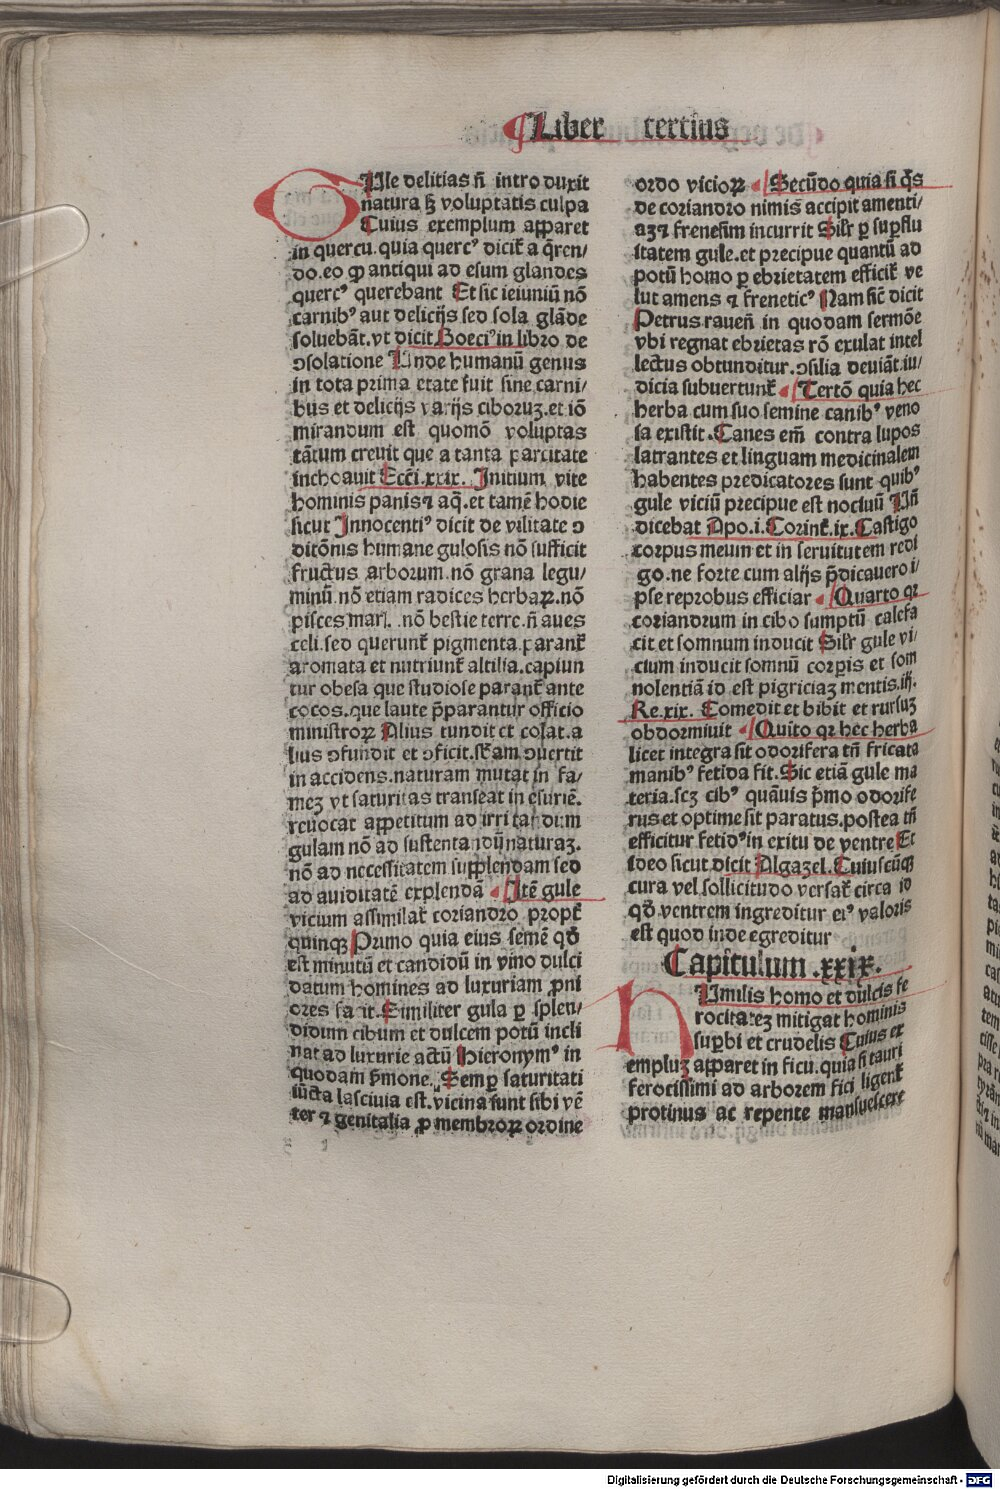 Liber tertius
GUle delitias nō introduxit
natura sꝫ voluptatis culpa
Cuius exemplum apparet
in quercu. quia quercꝰ dicit̄ a q̄ren/
do. eo ꝙ antiqui ad esum glandes
quercꝰ querebant Et sic ieiuniū nō
carnibꝰ aut delicijs sed sola glāde
soluebāt. vt dicit Boeciꝰ in libro de
ↄsolatione Unde humanū genus
in tota prima etate fuit sine carni/
bus et delicijs varijs ciboruꝫ. et iō
mirandum est quomō voluptas
tātum creuit que a tanta parcitate
inchoauit Eccī. xxix. Initium vite
hominis panis ⁊ aq̄. et tamē hodie
sicut Innocentiꝰ dicit de vilitate ↄ
ditōnis humane gulosis nō sufficit
fructus arborum. nō grana legu/
minū. nō etiam radices herbaꝝ. nō
pisces mar̄. nō bestie terre. n̄ aues
celi. sed querunt̄ pigmenta. parant̄
aromata et nutriunt̄ altilia. capiun
tur obesa que studiose parant̄ ante
cocos. que laute p̄parantur officio
ministroꝝ Alius tundit et colat. a
lius ↄfundit et ↄficit. sb̄am ↄuertit
in accidens. naturam mutat in fa/
meꝫ vt saturitas transeat in esuriē.
reuocat appetitum ad irritandum
gulam nō ad sustentandū naturaꝫ.
nō ad necessitatem supplendam sed
ad auiditatē explendā Itē gule
vicium assimilat̄ coriandro propt̄
quinqꝫ Primo quia eius semē qd̄
est minutū et candidū in vino dulci
datum homines ad luxuriam ꝓni
ores facit. Similiter gula ꝑ splen/
didum cibum et dulcem potū incli
nat ad luxurie actū Hieronymꝰ in
quodam ẜmone. Semꝑ saturitati
iūcta lasciuia est. vicina sunt sibi vē
ter ⁊ genitalia ꝓ membroꝝ ordine
ordo vicioꝝ Secūdo quia si q̄s
de coriandro nimis accipit amenti/
aꝫ ⁊ frenesim incurrit Silr̄ ꝑ suꝑflu
itatem gule. et precipue quantū ad
potū homo ꝑ ebrietatem efficit̄ ve
lut amens ⁊ freneticꝰ Nam sic̄ dicit
Petrus rauen̄ in quodam sermōe
vbi regnat ebrietas rō exulat intel
lectus obtunditur. ↄsilia deuiāt. iu/
dicia subuertunt̄ Tertō quia hec
herba cum suo semine canibꝰ veno
sa existit. Canes em̄ contra lupos
latrantes et linguam medicinalem
habentes predicatores sunt quibꝰ
gule viciū precipue est nociuū Un̄
dicebat Apo. i. Corint̄. ix. Castigo
corpus meum et in seruitutem redi
go. ne forte cum alijs p̄dicauero i/
pse reprobus efficiar Quarto qr
coriandrum in cibo sumptū calefa
cit et somnum inducit Silr̄ gule vi/
cium inducit somnū corꝑis et som
nolentiā id est pigriciaꝫ mentis. iij.
Re. xix. Comedit et bibit et rursuꝫ
obdormiuit Quīto qr hec herba
licet integra sit odorifera tn̄ fricata
manibꝰ fetida fit. Sic etiā gule ma
teria. scꝫ cibꝰ quāuis p̄mo odorife
rus et optime sit paratus. postea tn̄
efficitur fetidꝰ in exitu de ventre Et
ideo sicut dicit Algazel. Cuiuscūqꝫ
cura vel sollicitudo versat̄ circa id
qd̄ ventrem ingreditur eiꝰ valoris
est quod inde egreditur
Capitulum .xxix.
HUmilis homo et dulcis fe
rocitateꝫ mitigat hominis
suꝑbi et crudelis Cuius ex
empluꝫ apparet in ficu. quia si tauri
ferocissimi ad arborem fici ligent̄
protinus ac repente mansuescere
Digitalisierung gefördert durch die Deutsche Forschungsgemeinschaft - DFG